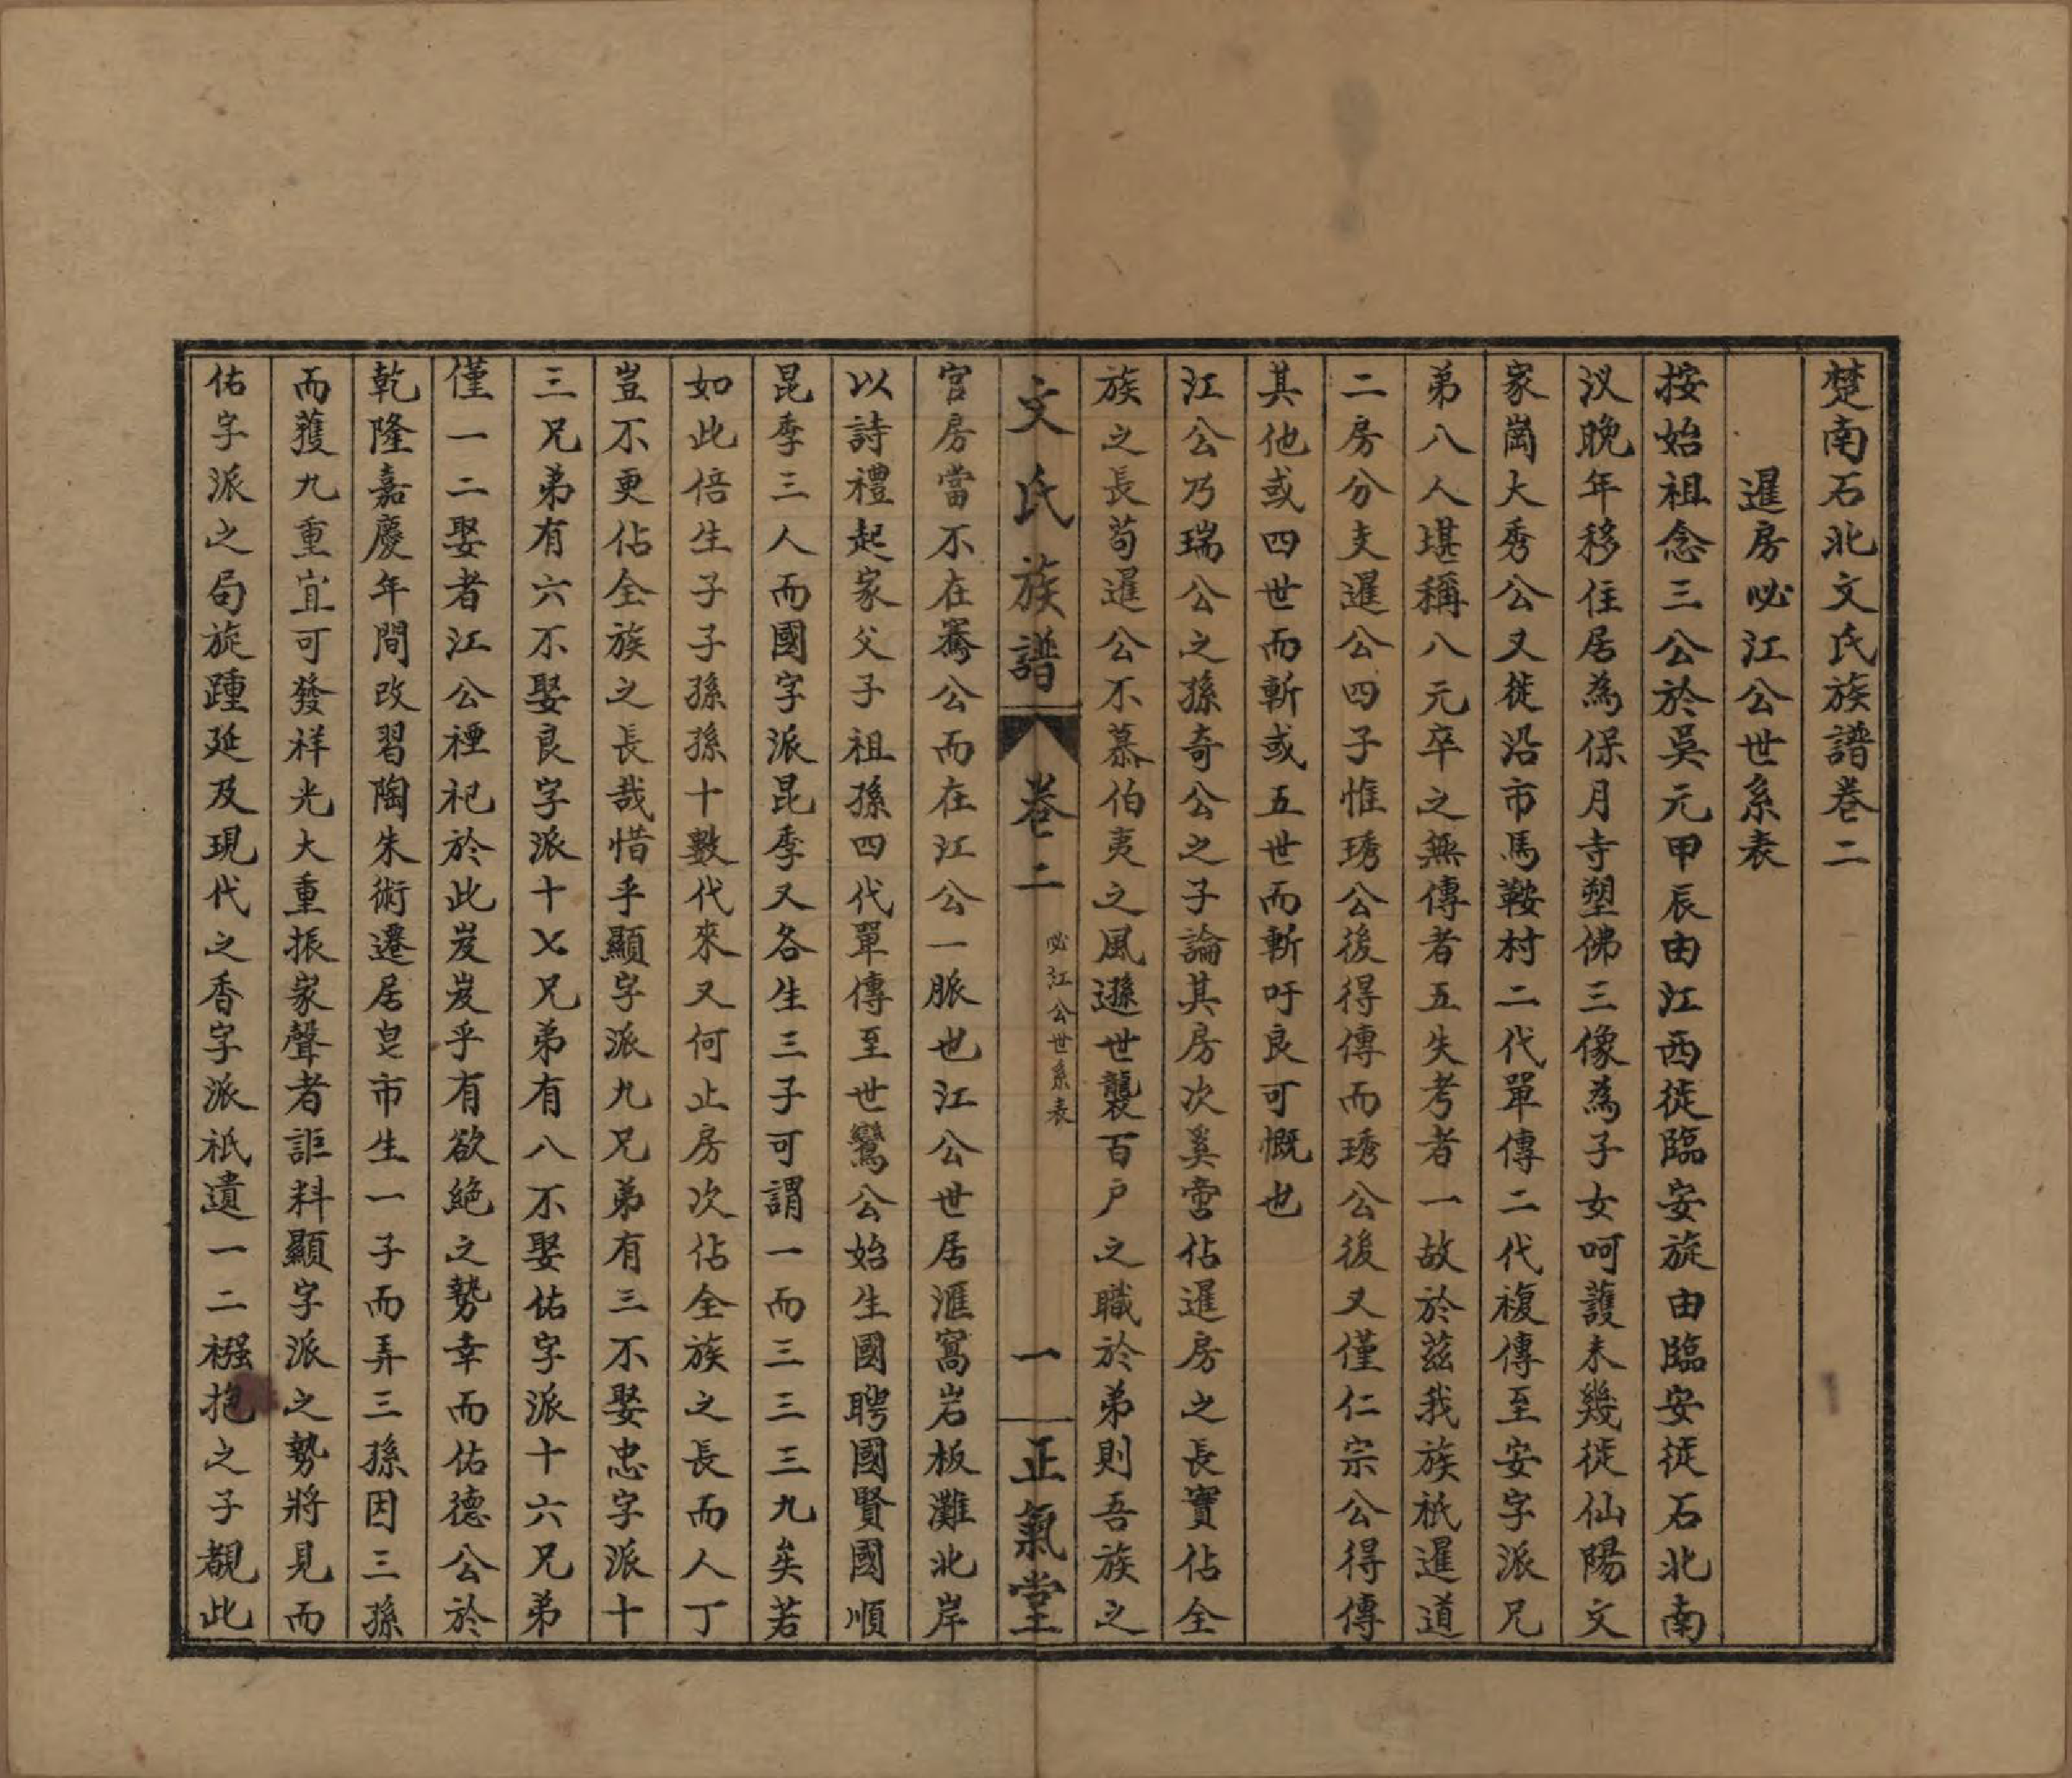 楚南石北文氏族譜卷二
暹房必江公世系表
按始祖念三公於吳元甲辰由江西徙臨安旋由臨安徙石北南
汊晚年移住居為保月寺塑佛三像為子女呵護未幾徙仙陽文
家崗大秀公又徙沿市馬鞍村二代單傳二代複傳至安字派兄
弟八人堪稱八元卒之無傳者五失考者一故於茲我族祇暹道
二房分支暹公四子惟琇公後得傳而琇公後又僅仁宗公得傳
其他或四世而斬或五世而斬吁良可慨也
江公乃瑞公之孫奇公之子論其房次奚啻佔暹房之長實佔全
族之長苟暹公不慕伯夷之風遜世襲百户之職於弟則吾族之
文氏族譜 卷二 必江公世系表 一 正氣堂
宮房當不在騫公而在江公一脈也江公世居滙窩岩板灘北岸
以詩禮起家父子祖孫四代單傳至世鸞公始生國聘國賢國順
昆季三人而國字派昆季又各生三子可謂一而三三三九矣若
如此倍生子子孫孫十數代來又何止房次佔全族之長而人丁
豈不更佔全族之長哉惜乎顯字派九兄弟有三不娶忠字派十
三兄弟有六不娶良字派十㐅兄弟有八不娶佑字派十六兄弟
僅一二娶者江公禋祀於此岌岌乎有欲絕之勢幸而佑德公於
乾隆嘉慶年間改習陶朱術遷居皂市生一子而弄三孫因三孫
而獲九重宜可發祥光大重振家聲者詎料顯字派之勢將見而
佑字派之局旋踵延及現代之香字派祇遺一二襁抱之子覩此